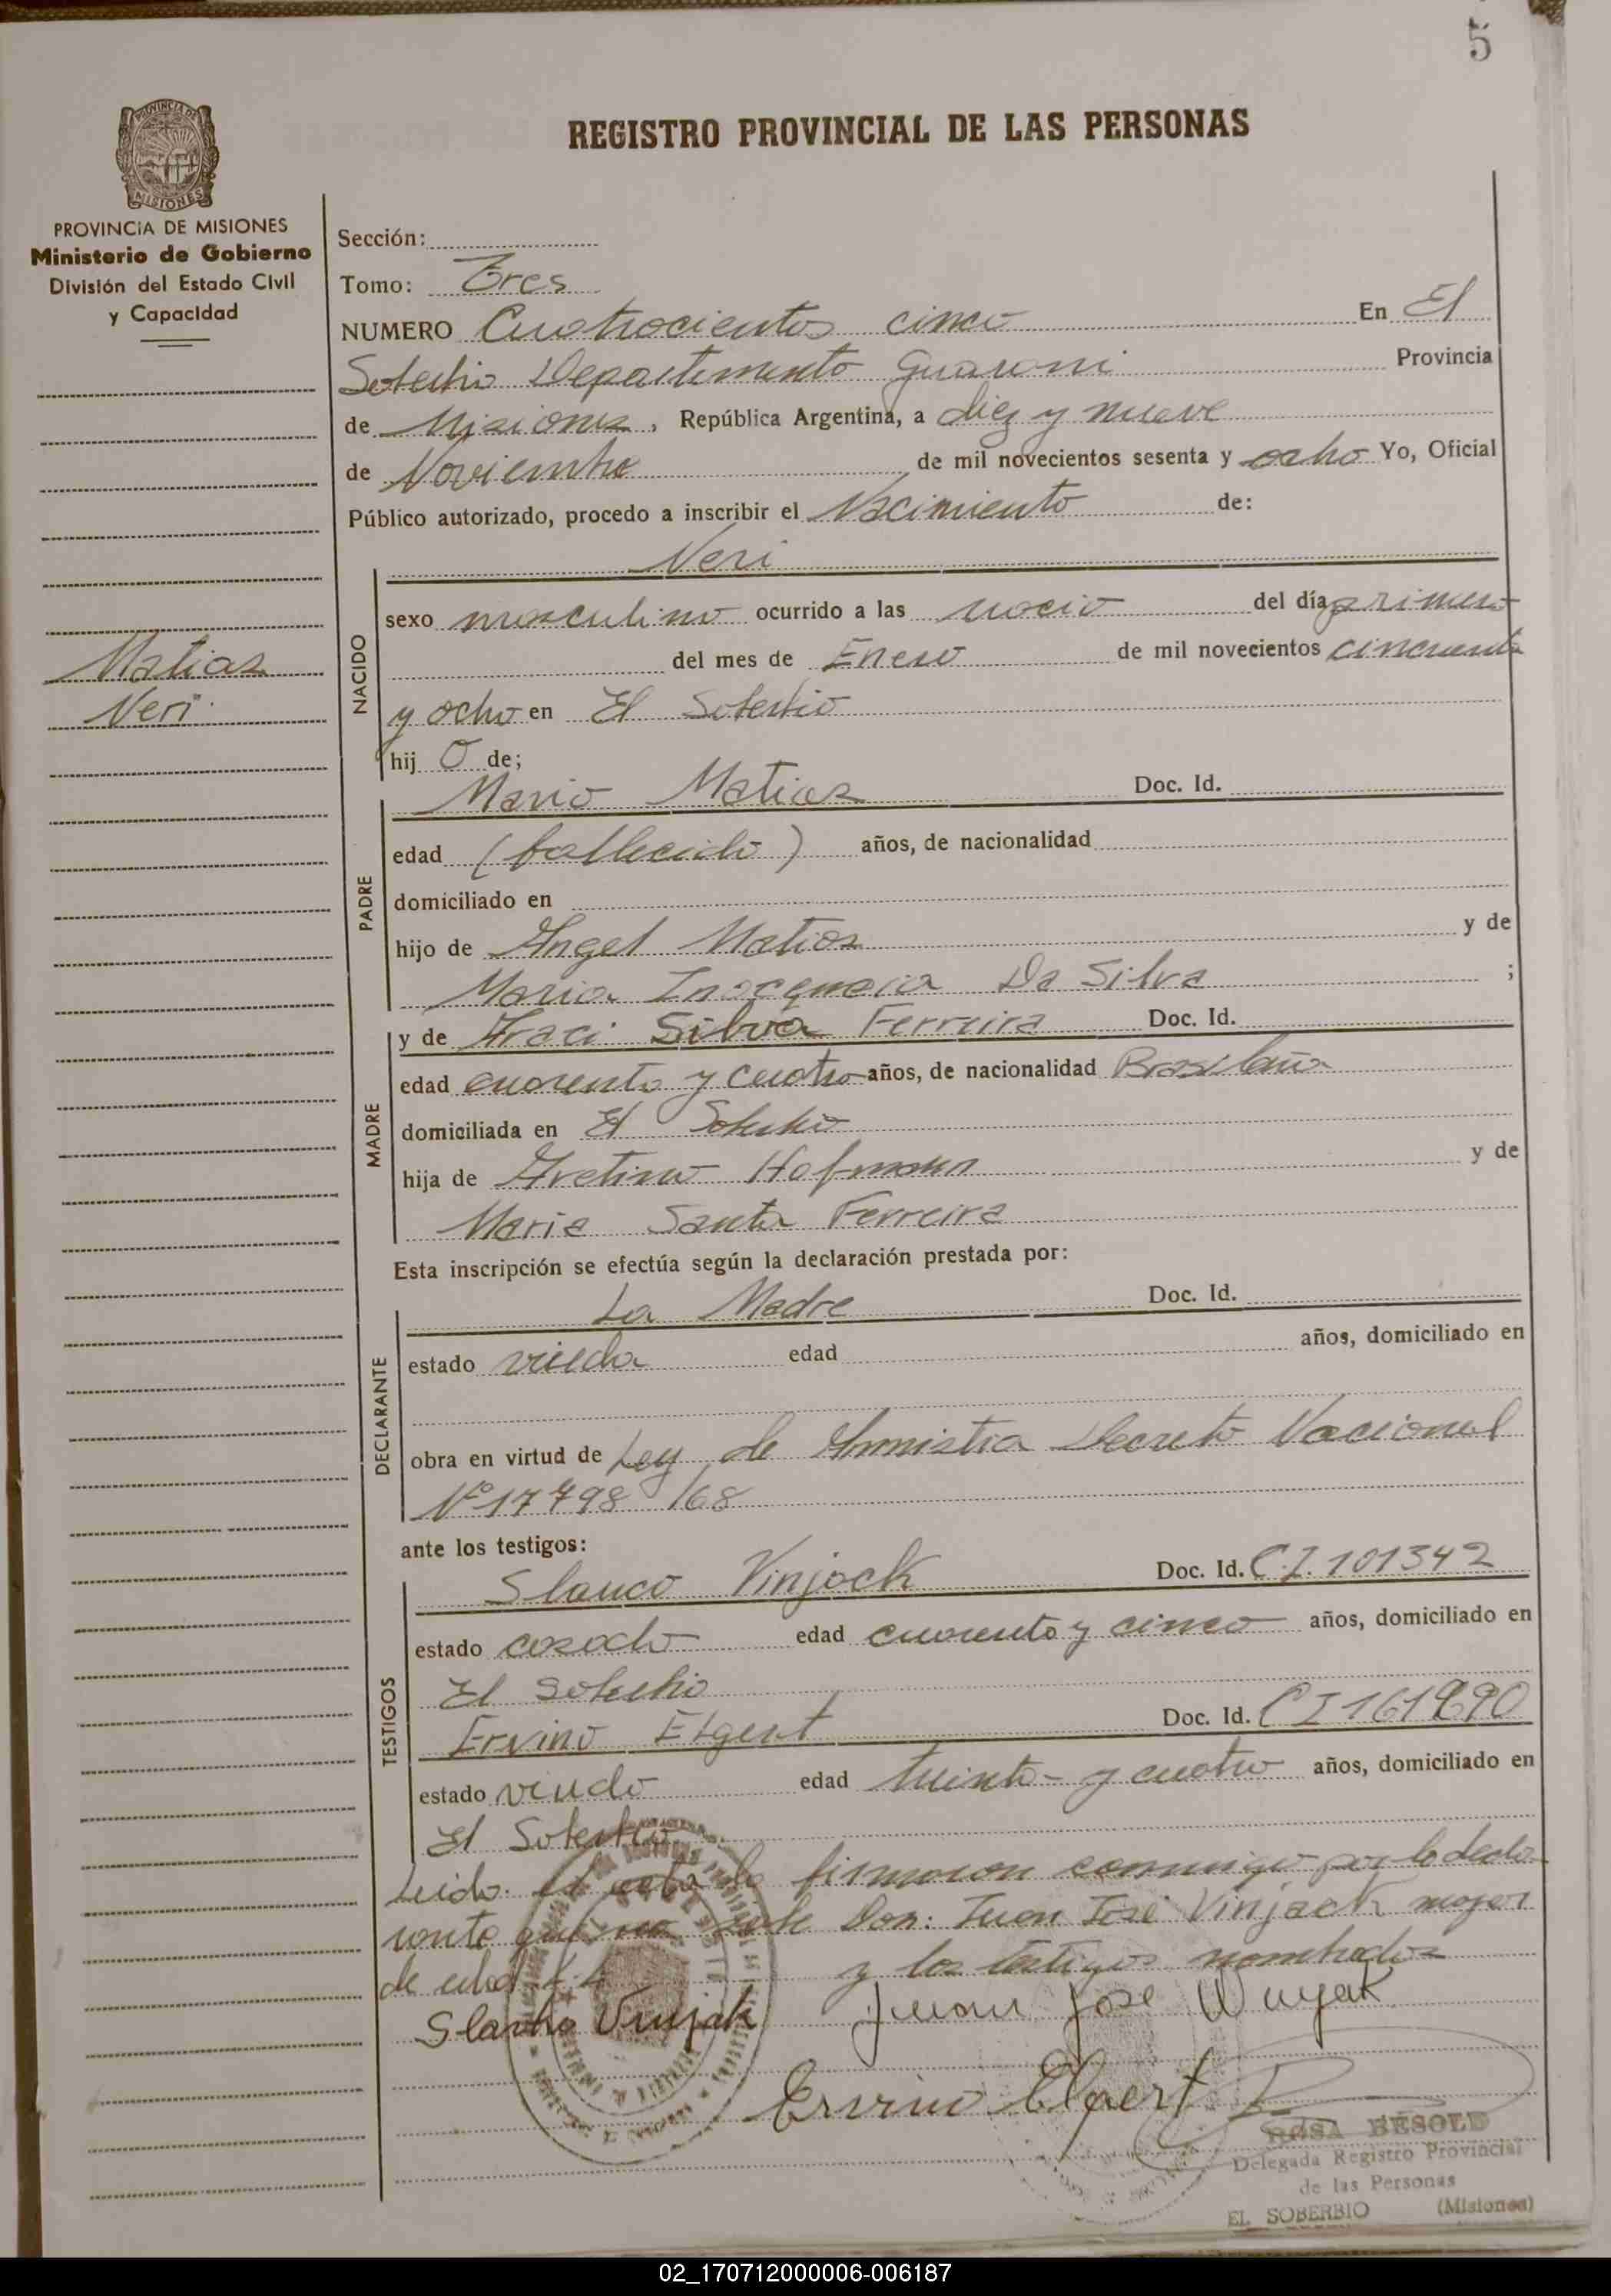 5
REGISTRO PROVINCIAL DE LAS PERSONAS
PROVINCIA DE MISIONES
PROVINCIA DE MISIONES
Ministerio de Gobierno
División del Estado Civil
y Capacidad
Matias
Neri
Sección:
Tomo: Tres
NUMERO Cuatrocientos cinco En El
Soberbio Departamento Guarani Provincia
de Misiones, República Argentina, a diez y nueve
de Noviembre de mil novecientos sesenta y ocho Yo, Oficial
Público autorizado, procedo a inscribir el Nacimiento de:
Neri
NACIDO
sexo masculino ocurrido a las nació del día primero
del mes de Enero de mil novecientos cincuenta
y ocho en El Soberbio
hij o de;
PADRE
Mario Matias Doc. Id.
edad (fallecido) años, de nacionalidad
domiciliado en
hijo de Angel Matias y de
Maria Da Silva ;
MADRE
y de Araci Silva Ferreira Doc. Id.
edad cuarenta y cuatro años, de nacionalidad Brasileña
domiciliada en El Soberbio
hija de Avelino Hofmann y de
Maria Santa Ferreira
Esta inscripción se efectúa según la declaración prestada por:
DECLARANTE
La Madre Doc. Id.
estado viuda edad años, domiciliado en
obra en virtud de Ley de Amnistia Decreto Nacional
Nº 17798/68
ante los testigos:
TESTIGOS
Slauco Vinjack Doc. Id. C.I. 101342
estado casado edad cuarenta y cinco años, domiciliado en
El Soberbio
Ervino Doc. Id. C I
estado viudo edad treinta y cuatro años, domiciliado en
El Soberbio
Leido el acta la firmaron conmigo por la decla-
rante que no sabe Don: Juan José Vinjack mayor
de edad y los testigos nombrados
Vinjak Juan José Vinyak
Ervino
ROSA BESOLD
Delegada Registro Provincial
de las Personas
EL SOBERBIO (Misiones)
02_170712000006-006187